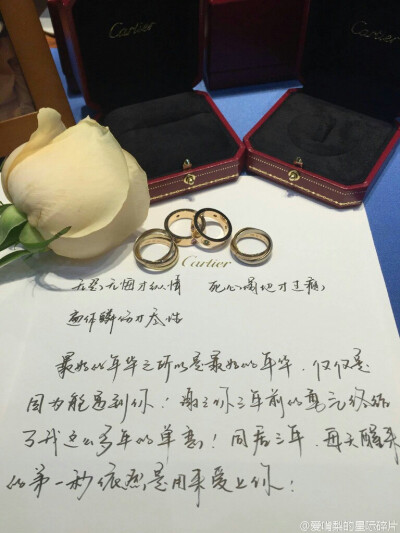 Cartier
Cartier
Cartier
无怨无悔才纵情 死心塌地才过瘾
遍体鳞伤才尽性
最好的年华之所以是最好的年华，仅仅是
因为能遇到你！谢谢你三年前的勇气终结
了我这么多年的单恋！同居三年，每天醒来
的第一秒依然是用来爱上你！
@爱嘴梨的星际碎片